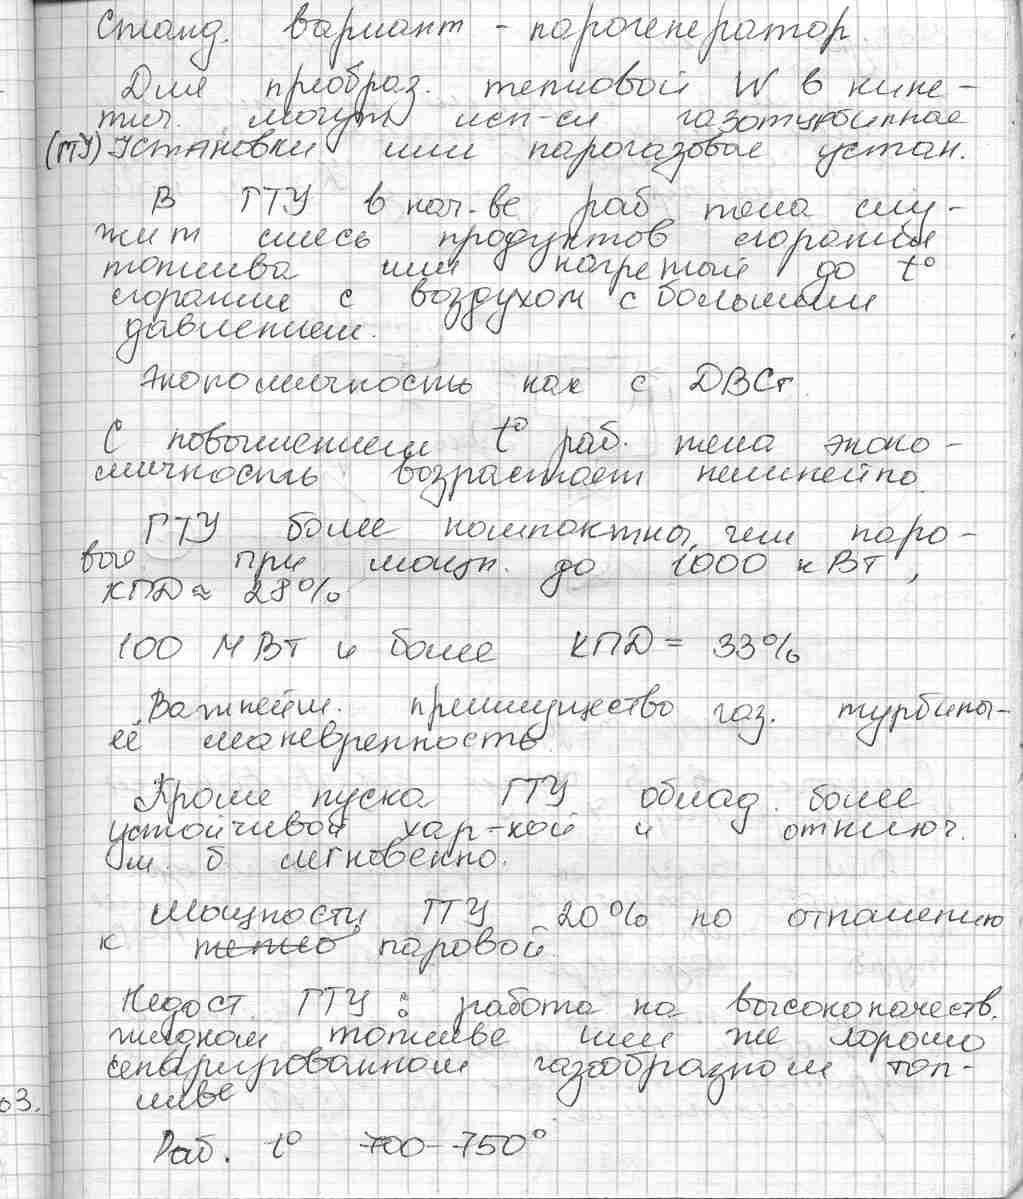 Станд. вариант - парогенератор.
Для преобраз. тепловой W в кине-
тич. могут исп-ся газотурбинные
(ГТУ) Установки или парогазовые устан.
В ГТУ в кач-ве раб тела слу-
жит смесь продуктов сгорания
топлива или нагретый до t°
сгорание с воздухом с большим
давлением.
Экономичность как с ДВСт
С повышением t° раб. тела эконо-
мичность возрастает нелинейно.
ГТУ более компактны, чем паро-
вые. при мощн. до 1000 кВт,
КПД ≈ 28%
100 МВт и более КПД = 33%
Важнейш. преимущество газ. турбины-
её маневренность.
Кроме пуска ГТУ облад. более
устойчивой хар-кой и отключ.
м. б мгновенно.
Мощность ГТУ 20% по отношению
к паровой.
Недост. ГТУ: работа на высококачеств.
жидком топливе или же хорошо
сепарированном газообразном топ-
ливе
оз.
Раб. t° 700-750°